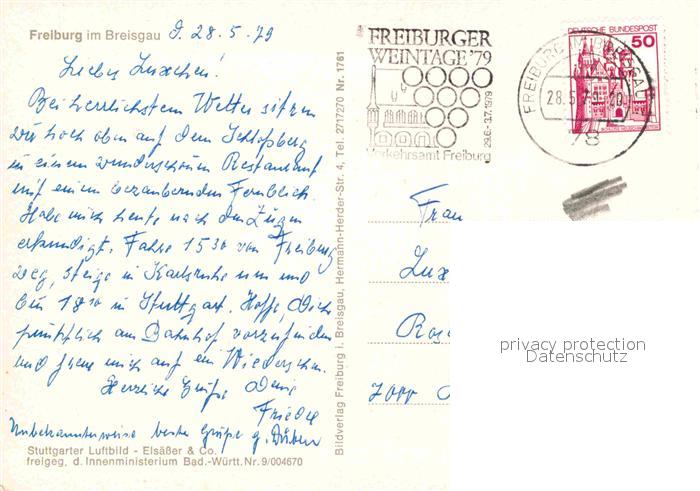 Freiburg im Breisgau d. 28.5.79
Liebes Luxchen!
Bei herrlichstem Wetter sitzen
wir hoch oben auf dem Schloßberg
in einem wunderschönen Restaurant
mit einem bezaubernden Fernblick.
Habe mich heute nach den Zügen
erkundigt. Fahre 15 30 von Freiburg
weg, steige in Karlsruhe um und
bin 18 10 in Stuttgart. Hoffe, Dich
pünktlich am Bahnhof vorzufinden
und freue mich auf ein Wiedersehen.
Herzliche Grüße Deine
Friedel
Unbekannterweise beste Grüße
Stuttgarter Luftbild - Elsäßer & Co.
freigeg. d. Innenministerium Bad.-Württ. Nr. 9/004670
Bildverlag Freiburg i. Breisgau, Hermann-Herder-Str. 4, Tel. 2717270 Nr. 1761
FREIBURGER
WEINTAGE '79
29.6.-3.7.1979
Verkehrsamt Freiburg
FREIBURG IM BREISGAU
28.5.79-20
78
DEUTSCHE BUNDESPOST
50
Frau
Lux
Ros
7000
privacy protection
Datenschutz